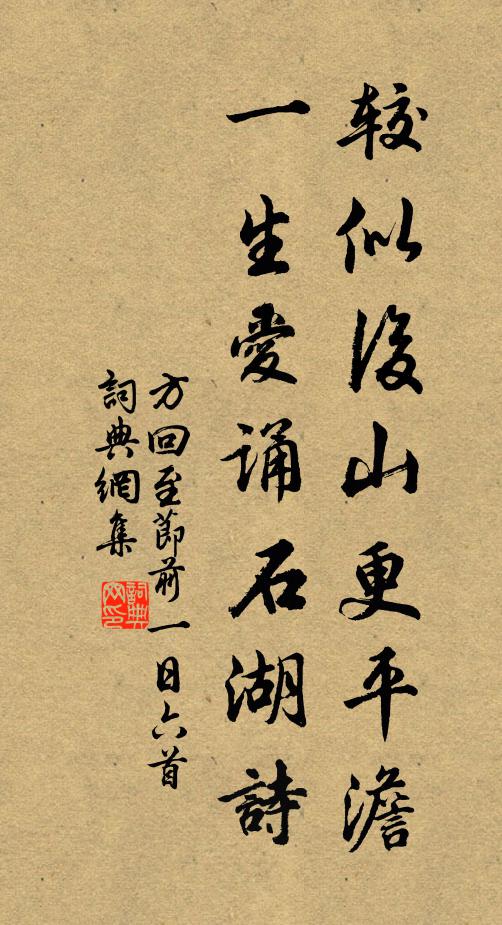 較似後山更平澹
一生愛誦石湖詩
方回至節前一日六首
詞典網集
詞典网印